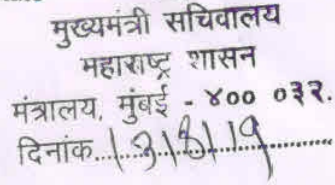 मुख्यमंत्री सचिवालय
महाराष्ट्र शासन
मंत्रालय, मुंबई - ४०० ०३२.
दिनांक